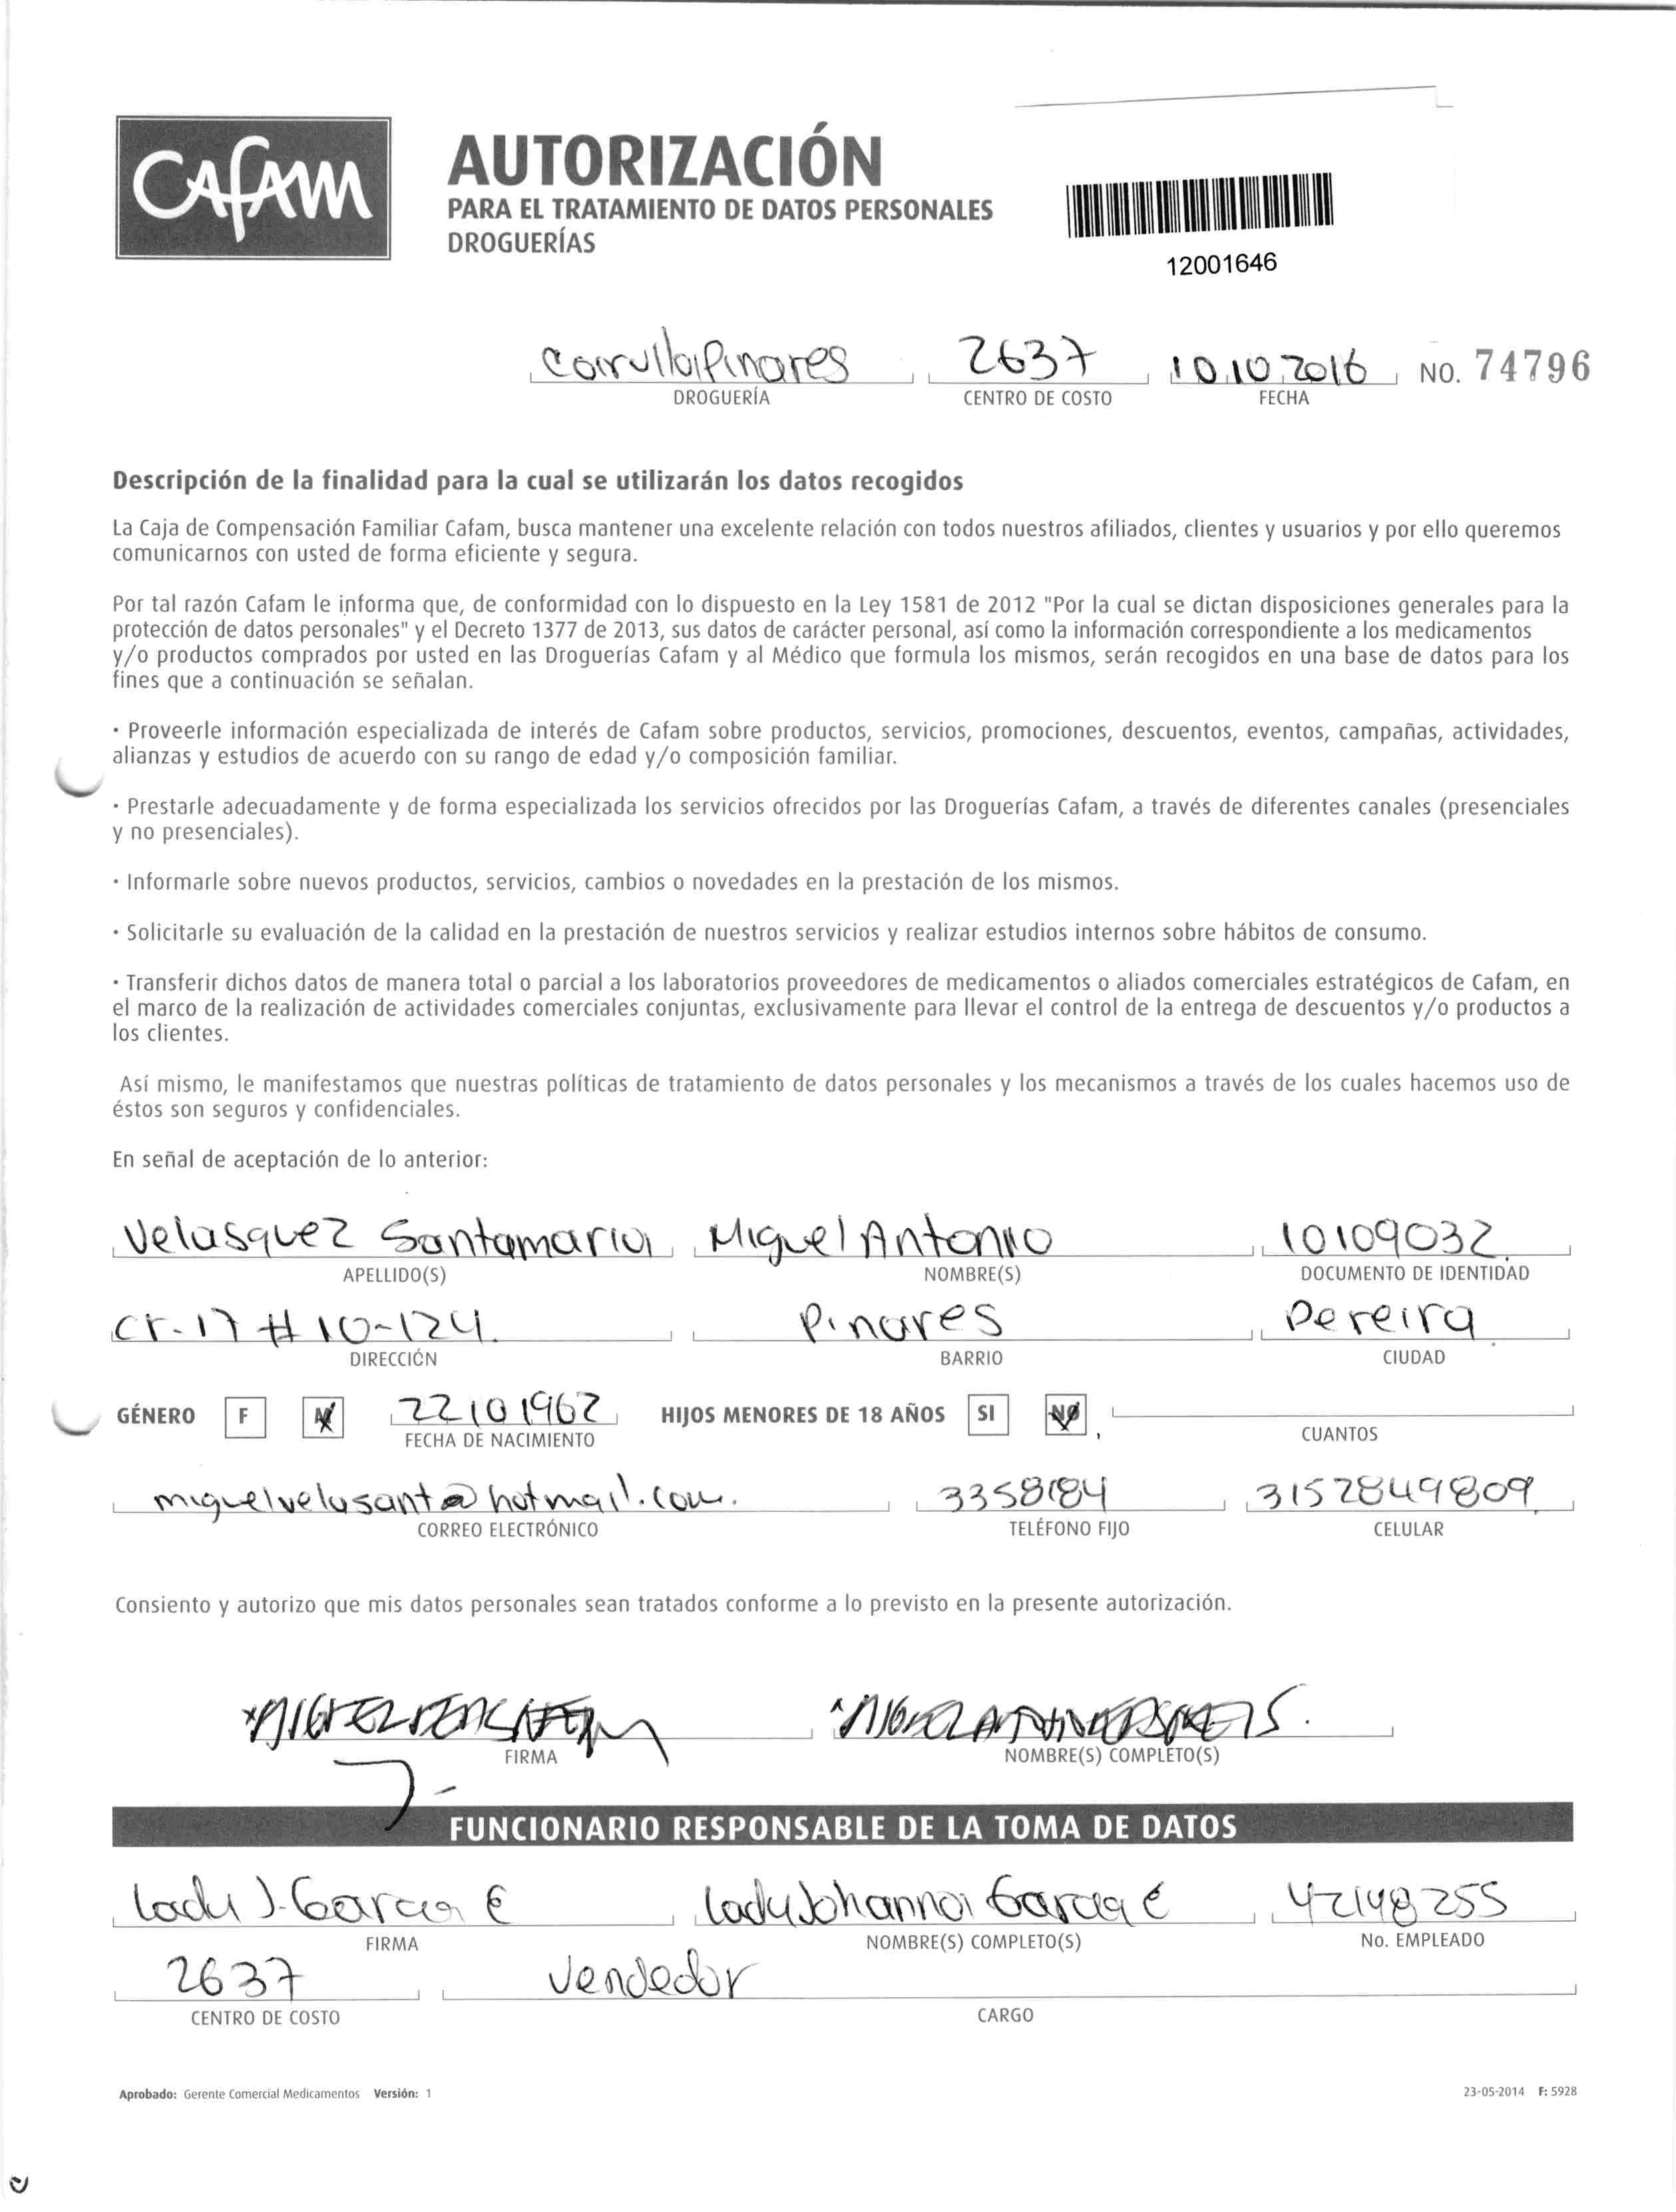 CAFAM
AUTORIZACIÓN
PARA EL TRATAMIENTO DE DATOS PERSONALES
DROGUERÍAS
12001646
CarullaPinares 2637 10 10 2016 NO. 74796
DROGUERÍA CENTRO DE COSTO FECHA
Descripción de la finalidad para la cual se utilizarán los datos recogidos
La Caja de Compensación Familiar Cafam, busca mantener una excelente relación con todos nuestros afiliados, clientes y usuarios y por ello queremos
comunicarnos con usted de forma eficiente y segura.
Por tal razón Cafam le informa que, de conformidad con lo dispuesto en la Ley 1581 de 2012 "Por la cual se dictan disposiciones generales para la
protección de datos personales" y el Decreto 1377 de 2013, sus datos de carácter personal, así como la información correspondiente a los medicamentos
y/o productos comprados por usted en las Droguerías Cafam y al Médico que formula los mismos, serán recogidos en una base de datos para los
fines que a continuación se señalan.
· Proveerle información especializada de interés de Cafam sobre productos, servicios, promociones, descuentos, eventos, campañas, actividades,
alianzas y estudios de acuerdo con su rango de edad y/o composición familiar.
· Prestarle adecuadamente y de forma especializada los servicios ofrecidos por las Droguerías Cafam, a través de diferentes canales (presenciales
y no presenciales).
· Informarle sobre nuevos productos, servicios, cambios o novedades en la prestación de los mismos.
· Solicitarle su evaluación de la calidad en la prestación de nuestros servicios y realizar estudios internos sobre hábitos de consumo.
· Transferir dichos datos de manera total o parcial a los laboratorios proveedores de medicamentos o aliados comerciales estratégicos de Cafam, en
el marco de la realización de actividades comerciales conjuntas, exclusivamente para llevar el control de la entrega de descuentos y/o productos a
los clientes.
Así mismo, le manifestamos que nuestras políticas de tratamiento de datos personales y los mecanismos a través de los cuales hacemos uso de
éstos son seguros y confidenciales.
En señal de aceptación de lo anterior:
Velasquez Santamaria Miguel Antonio 10109032
APELLIDO(S) NOMBRE(S) DOCUMENTO DE IDENTIDAD
Cr. 17 # 10-124. Pinares Pereira
DIRECCIÓN BARRIO CIUDAD
GÉNERO F M 22 10 1962 HIJOS MENORES DE 18 AÑOS SI NO
FECHA DE NACIMIENTO CUANTOS
miguelvelasant@hotmail.com. 3358184 3152849809
CORREO ELECTRÓNICO TELÉFONO FIJO CELULAR
Consiento y autorizo que mis datos personales sean tratados conforme a lo previsto en la presente autorización.
FIRMA NOMBRE(S) COMPLETO(S)
FUNCIONARIO RESPONSABLE DE LA TOMA DE DATOS
Lady J. Garcia E Lady Johanna Garcia E 42148255
FIRMA NOMBRE(S) COMPLETO(S) No. EMPLEADO
2637 Vendedor
CENTRO DE COSTO CARGO
Aprobado: Gerente Comercial Medicamentos Versión: 1 23-05-2014 F: 5928